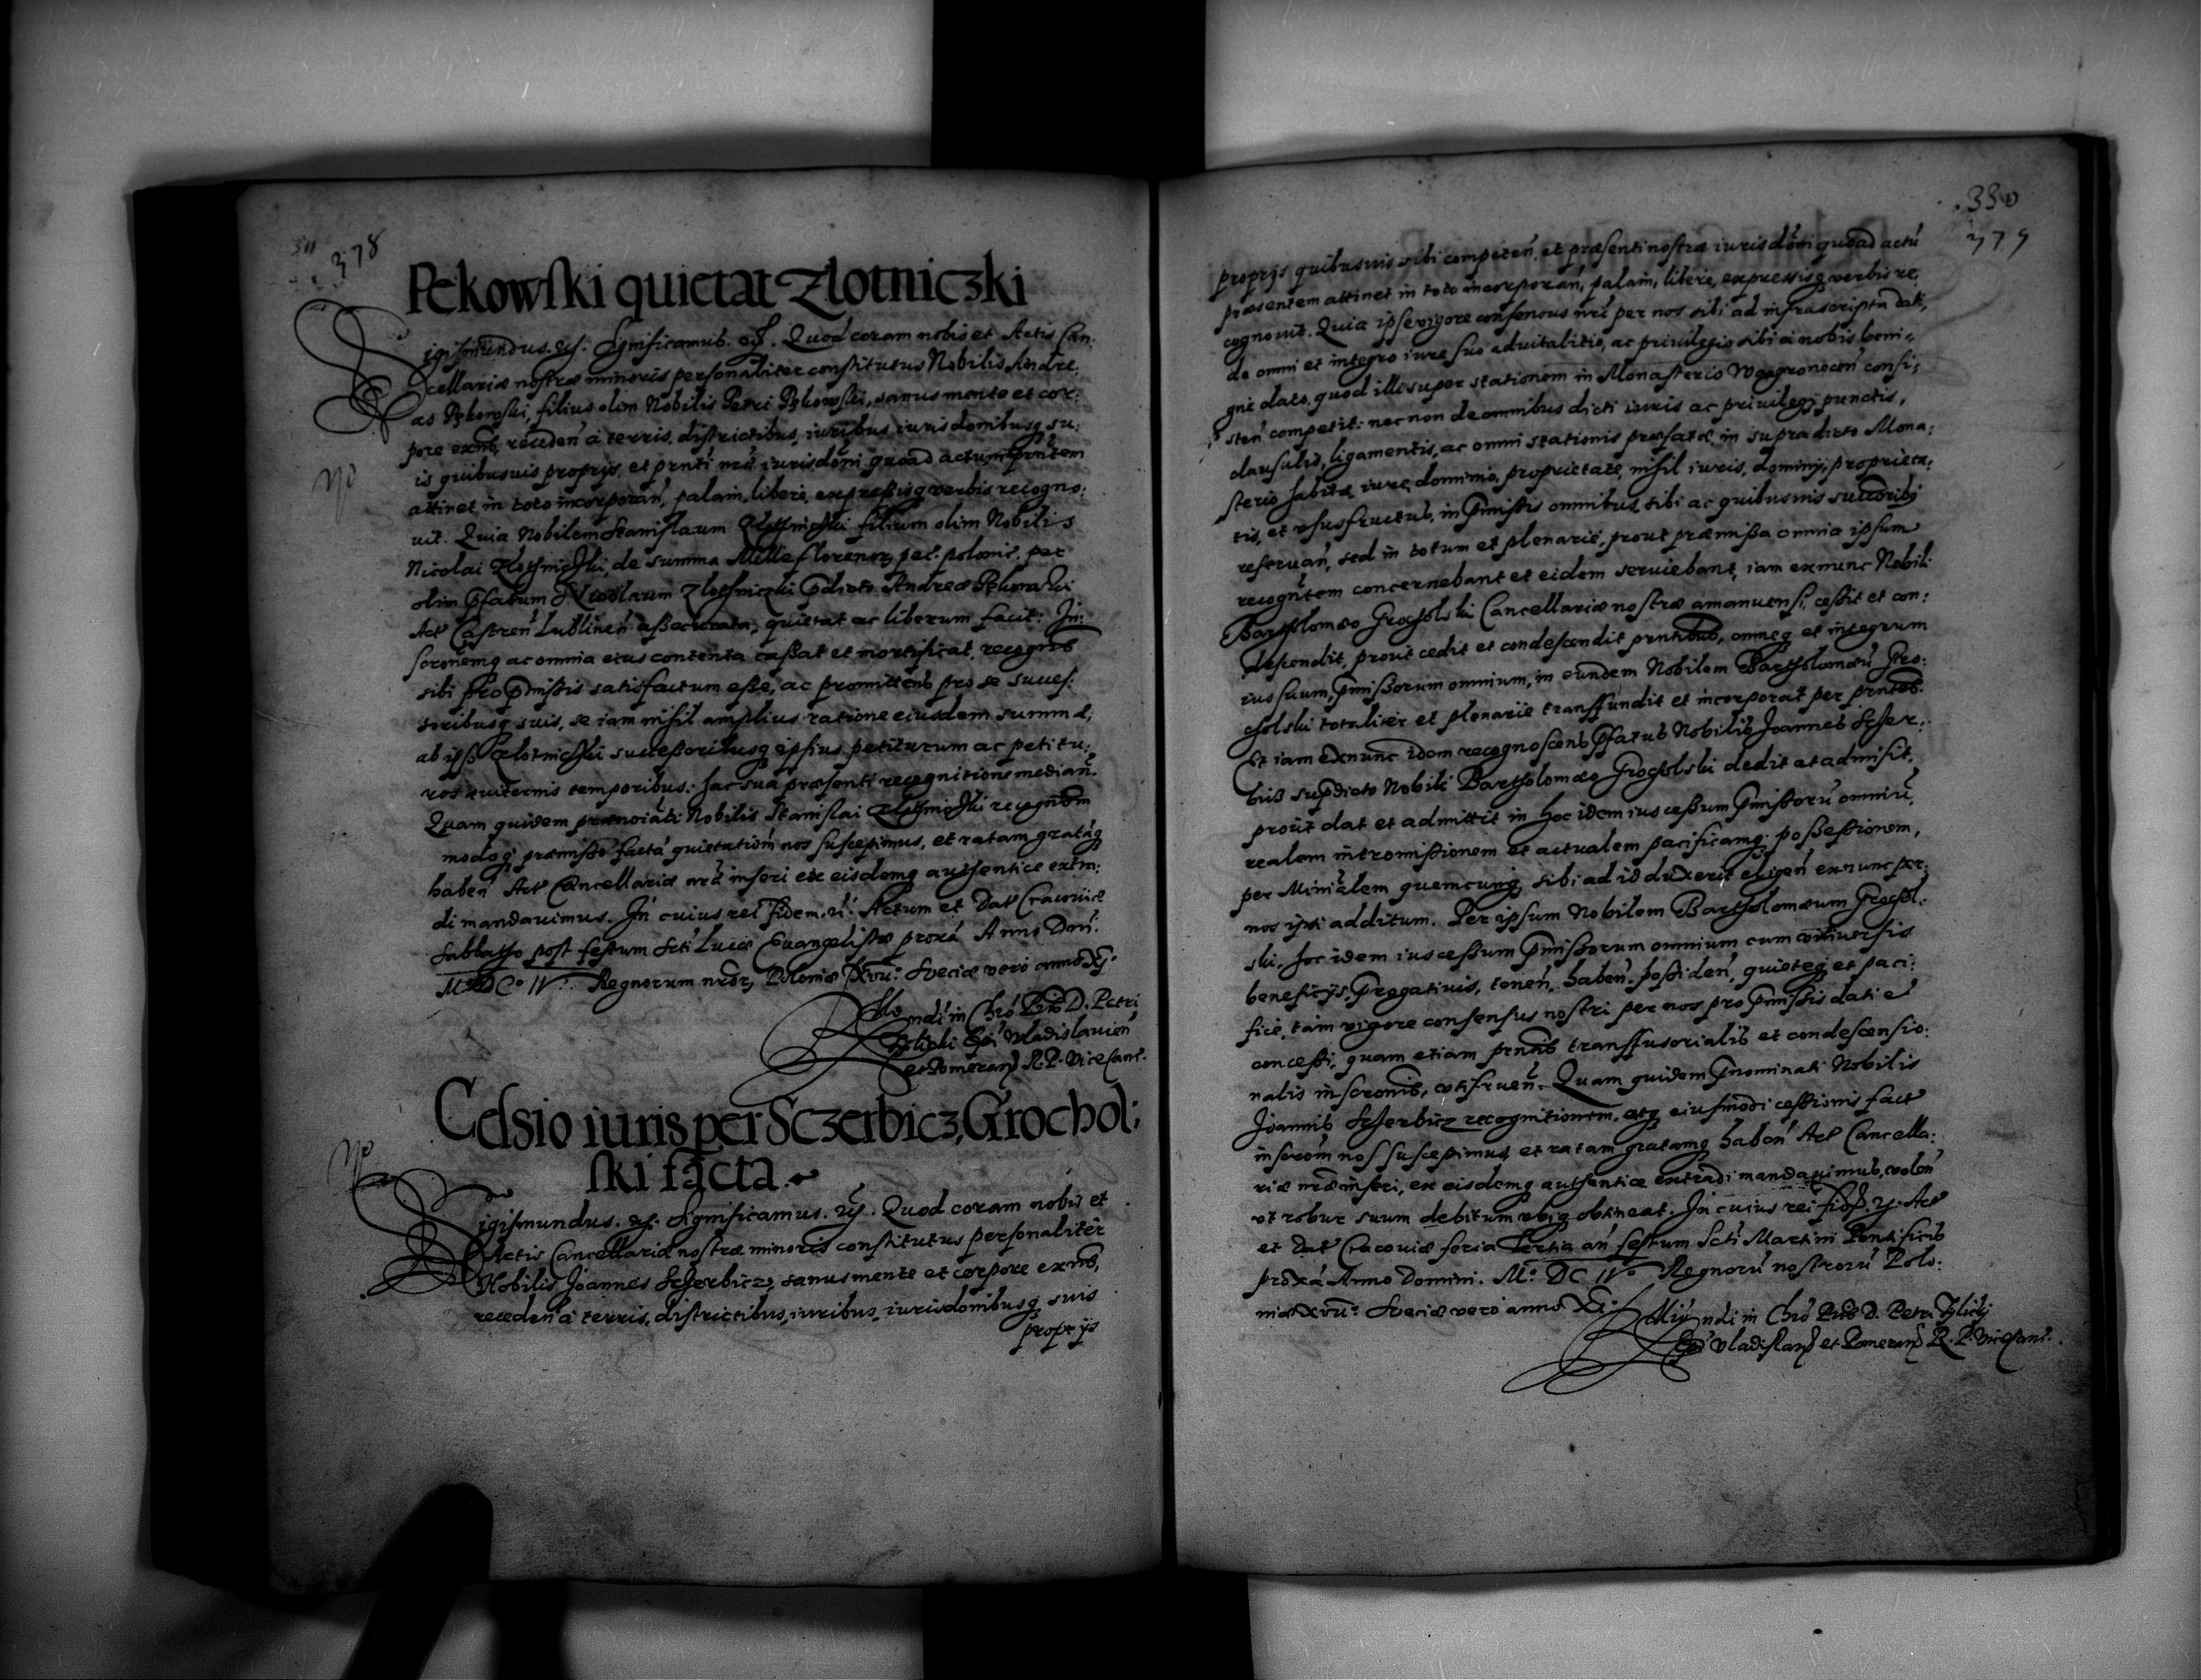 378
Pękowſki quietat Zlotniczki
Sigiſmundus. &c. Significamus. &c. Quod coram nobis et Actis Can:
cellariæ nostræ minoris personaliter constitutus Nobilis Andre:
as Pękowski, filius olim Nobilis Petri Pękowski, sanus mente et cor:
pore exñs, recedeñ a terris, districtibus, iuribus iurisdonibusq su:
is quibusuis proprijs, et prñti nrã iurisdoni quoad actum prñtem
attinet in toto incorporañ, palam, libere, expreßisq verbis recogno:
uit. Quia Nobilem Stanislaum Zlothnichki filium olim Nobilis
Nicolai Zlothnichki, de summa Mille florenor, pec. polonic. per
olim pfatum Nicolaum Zlothniczki pdicto Andreæ Pękowski
Act Castreñ Lublineñ aßecurata, quietat ac liberum facit: In:
scronemq ac omnia eius contenta caßat et mortificat, recognoscens
sibi pro pmißis satisfactum eße, ac promittens pro se succes:
soribusq suis, se iam nihil amplius ratione eiusdem summæ,
ab ipso Zlotnichki succeßoribusq ipsius petiturum ac petitu:
ros æuiternis temporibus: hac sua præsenti recognitione mediañ.
Quam quidem prænoiati Nobilis Stanislai Zlothnichki recognoem
modoq præmißo factã quietationem nos suscepimus, et ratam gratãq
habeñ Act Cancellariæ nrã inseri ex eisdemq authentice extra:
di mandauimus. In cuius rei fidem. &c. Actum et Dat Cracouiæ
Sabbatho post festum Scti Lucæ Euangelistæ proxã Anno Dni.
Mº DCº IVº. Regnorum nrõr, Poloniæ XVIIº Sueciæ vero anno XI.º
Rndi in Chrõ Pris D. Petri
Tylicki Epi Vladislauien
et Pomeraniæ R. P. ViceCanc.
Ceſsio iuris per Sczerbicz, Grochol:
ſki facta.
Sigiſmundus. &c. Significamus. &c. Quod coram nobis et
Actis Cancellariæ nostræ minoris constitutus personaliter
Nobilis Joannes Scherbicz, sanus mente et corpore exñs,
recedeñ a terris, districtibus, iuribus, iurisdonibusq suis
proprijs
330
379
proprijs quibusuis sibi competeñ, et præsenti nostræ iurisdoni quoad actũ
præsentem attinet in toto incorporañ, palam, libere, expressisq verbis re,
cognouit. Quia ipse vigore consensus nrĩ per nos sibi ad infrascripta dati,
de omni et integro iure suo aduitalitio, ac priuilegio sibi a nobis beni:
gne dato, quod illi super stationem in Monasterio Wągrowecen consi:
steñ competit: nec non de omnibus dicti iuris ac priuilegij punctis,
clausulis, ligamentis, ac omni stationis præfatæ, in supradicto Mona:
sterio habitæ iure, dominio, proprietate, nihil iuris, dominij, proprieta:
tis, et vsusfructus, in pmißis omnibus, sibi ac quibusuis succoribus
reseruañ, sed in totum et plenarie, prout præmißa omnia ipsum
recogñtem concernebant et eidem seruiebant, iam exnunc Nobili
Bartholomæo Grocholski Cancellariæ nostræ amanuensi, ceßit et con:
descendit, prout cedit et condescendit prntibus, omneq et integrum
ius suum, pmißorum omnium, in eundem Nobilem Bartholomæũ Gro:
cholski totaliter et plenarie transfundit et incorporat per prntes.
Et iam exnunc idem recognoscens pfatus Nobilis Joannes Scher:
bicz supdicto Nobili Bartholomæo Grocholski dedit et admisit,
prout dat et admittit in hoc idem ius ceßum pmißorũ omniũ,
realem intromißionem et actualem pacificamq poßeßionem,
per Minialem quemcunq sibi ad id duxerit eligeñ exnunc per
nos ipsi additum. Per ipsum Nobilem Bartholomæum Grochol:
ski, hoc idem ius ceßum pmißorum omnium cum vniuersis
beneficijs, prærogatiuis, teneñ, habeñ, poßideñ, quieteq et paci:
fice, tam vigore consensus nostri per nos pro pmißis dati et
conceßi, quam etiam prntis transfusorialis et condescensio:
nalis inscronis, vtifrueñ. Quam quidem pnominati Nobilis
Joannis Scherbicz recognitionem, atq eiusmodi ceßionis fact
inscrom nos suscepimus, et ratam gratamq habeñ Act Cancella:
riæ nræ inseri, ex eisdemq authentice extradi mandauimus, voleñ
vt robur suum debitum vbiq obtineat. In cuius rei fid. &c. Act
et Dat Cracouiæ feria Tertia añ festum Scti Martini Pontificis
proxã Anno Domini. Mº. DC IVº Regnorũ nostrorũ Polo:
niæ XVIIº. Sueciæ vero anno XI.
Rndi in Chrõ Pris D. Petri Tylicky
Epi Vladislauie et Pomeraniæ R. P. ViceCanc.